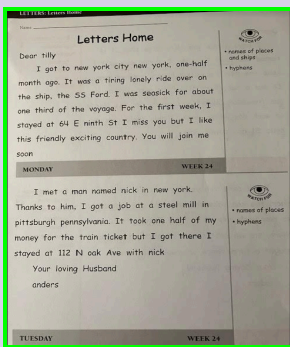 LETTERS: Letters Home
Name
Letters Home
WATCH FOR
• names of places
and ships
• hyphens
Dear tilly
I got to new york city new york, one-half
month ago. It was a tiring lonely ride over on
the ship, the SS Ford. I was seasick for about
one third of the voyage. For the first week, I
stayed at 64 E ninth St I miss you but I like
this friendly exciting country. You will join me
soon
MONDAY WEEK 24
WATCH FOR
• names of places
• hyphens
I met a man named nick in new york.
Thanks to him, I got a job at a steel mill in
pittsburgh pennsylvania. It took one half of my
money for the train ticket but I got there I
stayed at 112 N oak Ave with nick
Your loving Husband
anders
TUESDAY WEEK 24